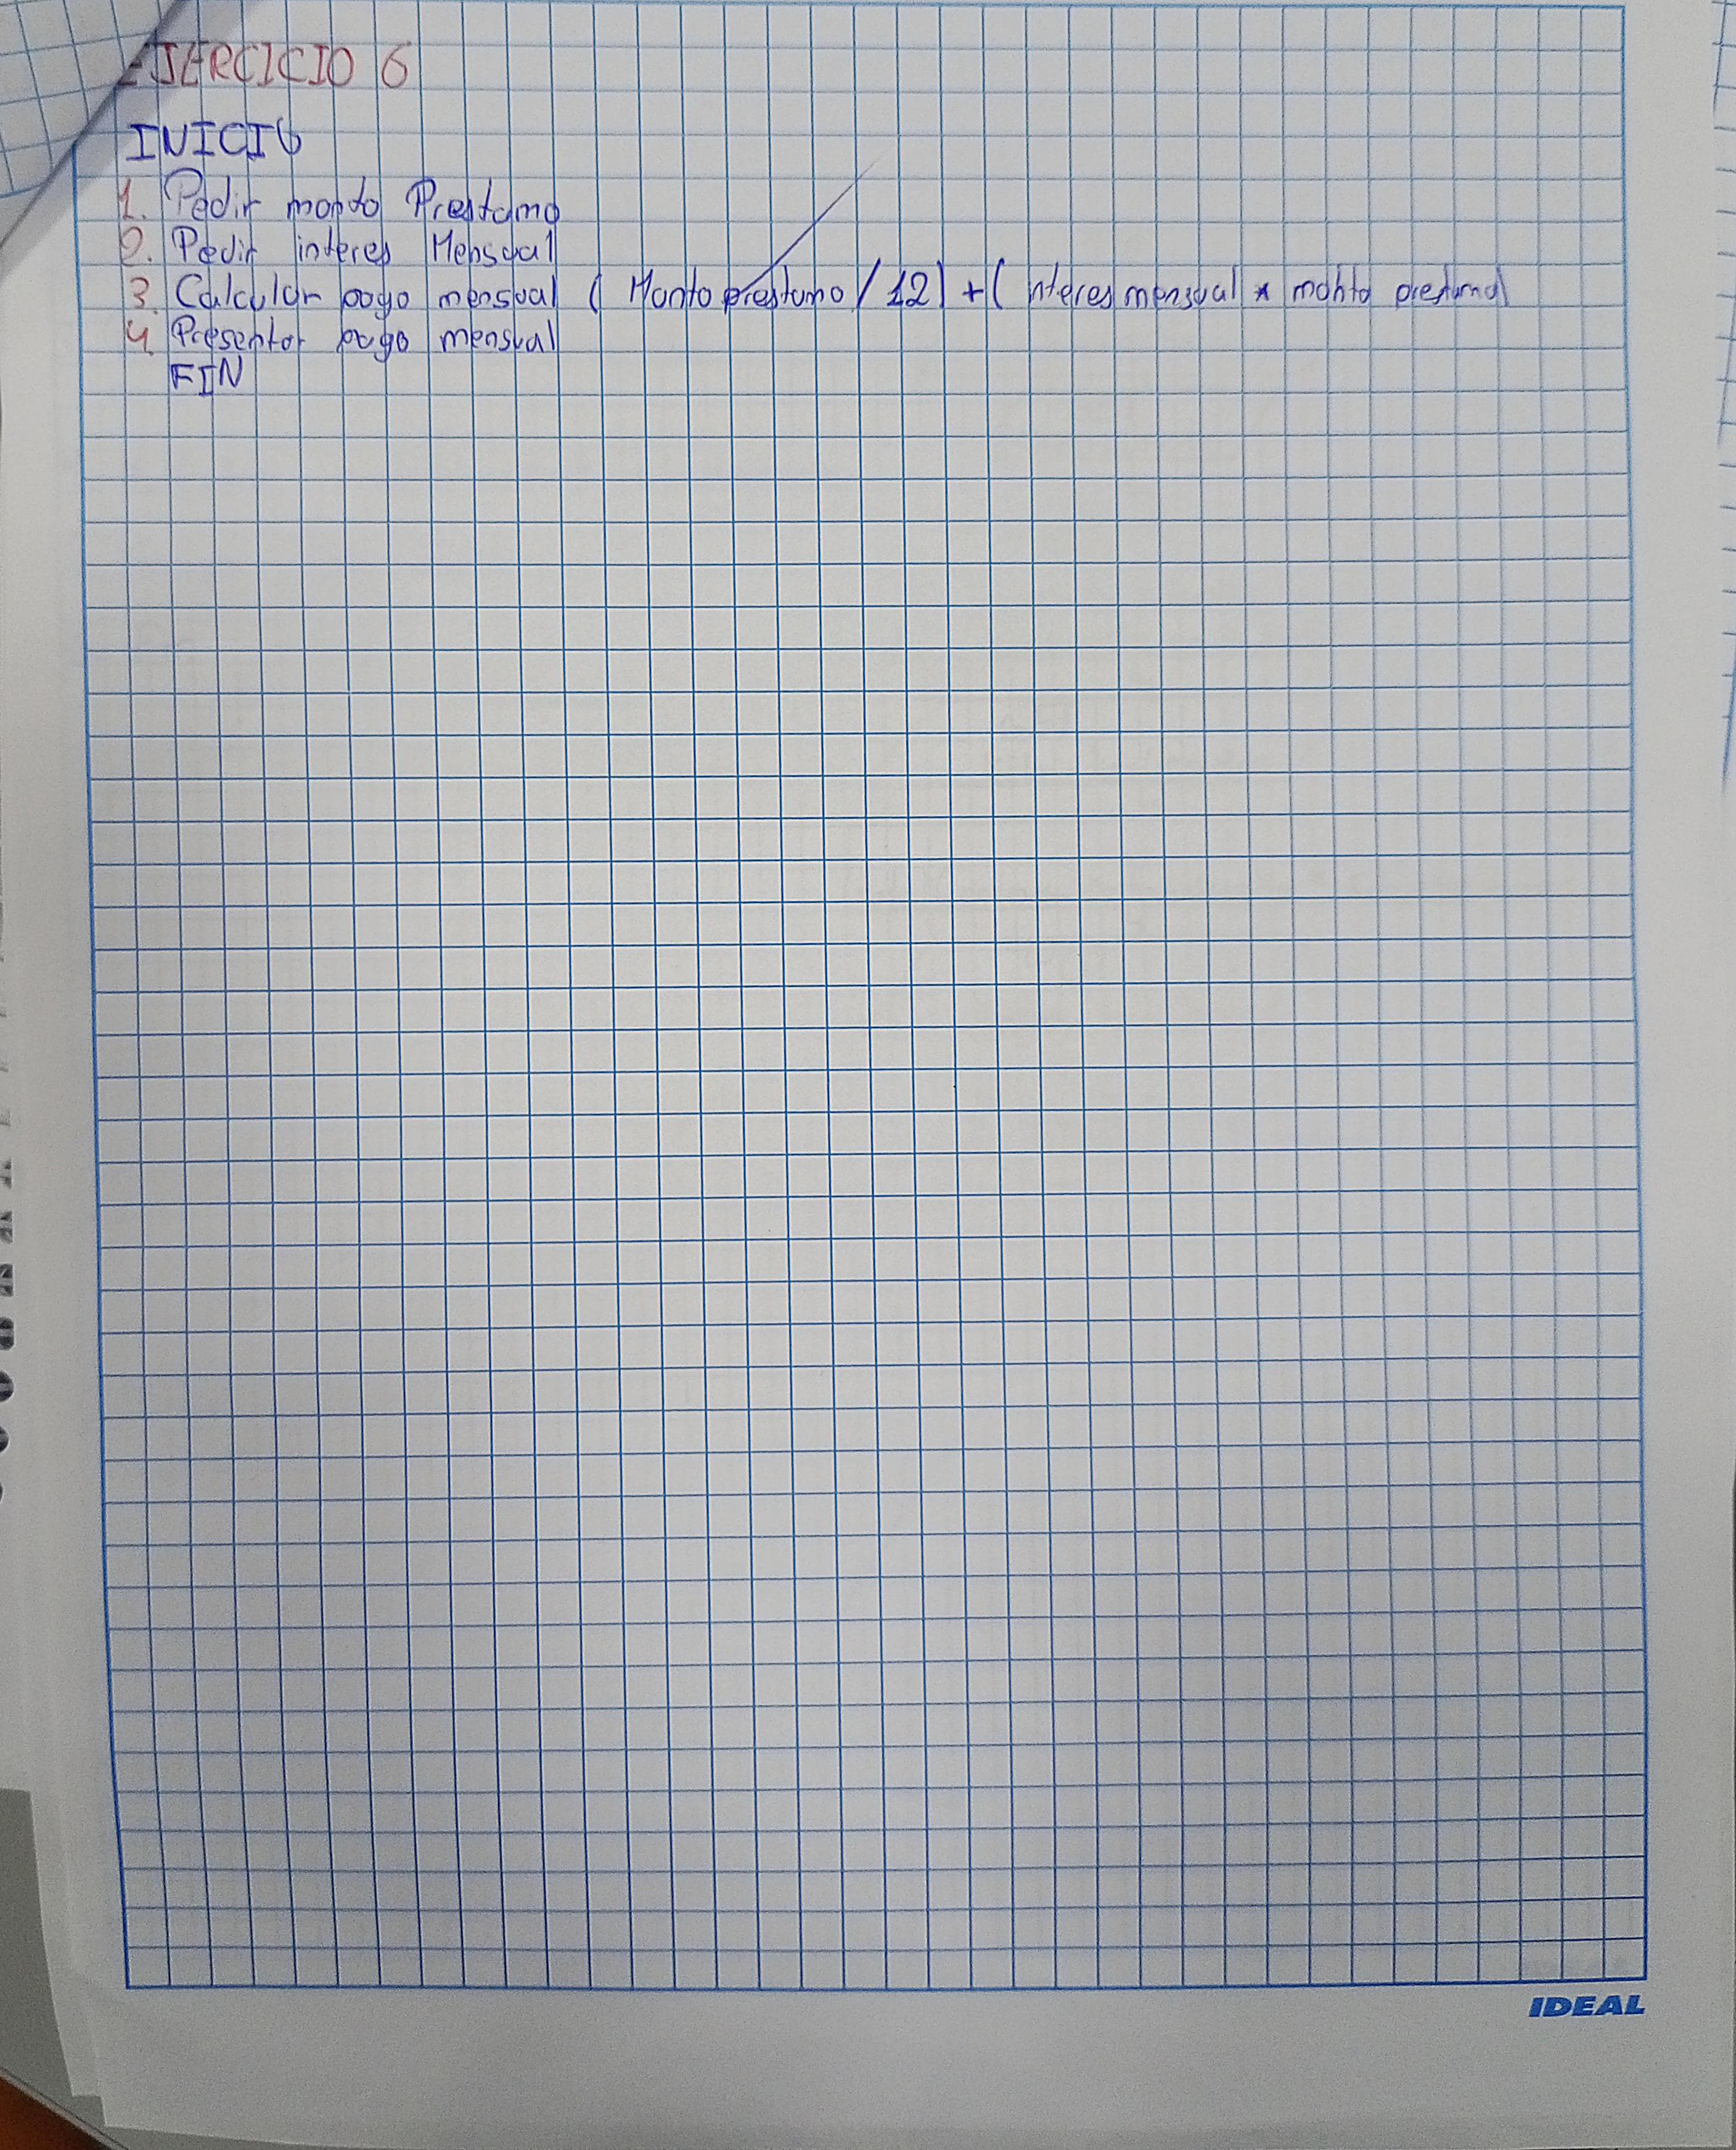 EJERCICIO 6
INICIO
1. Pedir monto Prestamo
2. Pedir interes Mensual
3. Calcular pago mensual ( Monto prestamo / 12) + ( interes mensual * monto prestamo)
4. Presentar pago mensual
FIN
IDEAL